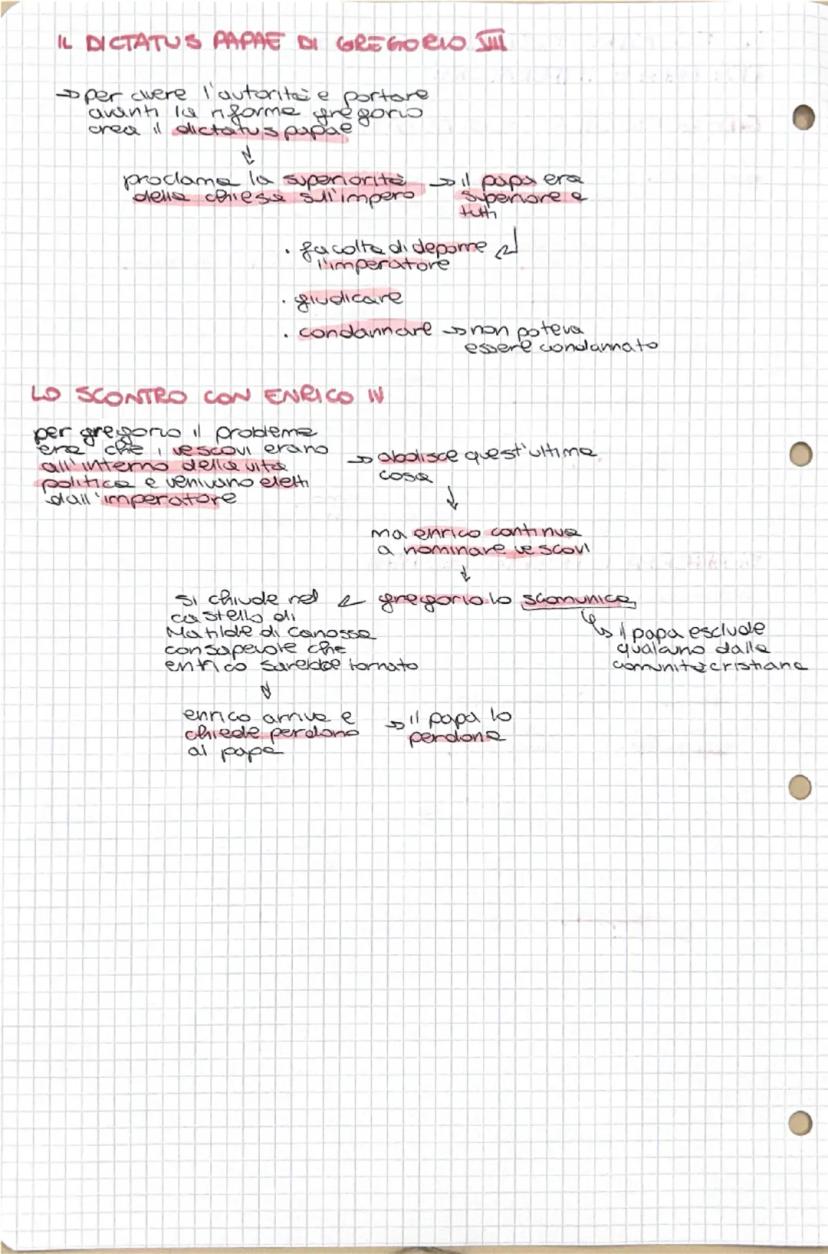 IL DICTATUS PAPAE DI GREGORIO VIII
→ per avere l'autorità e portare
avanti la riforma gregorio
crea il dictatus papae
↓
proclama la superiorità
della chiesa sull'impero
→ il papa era
superiore a
tutti
· facoltà di deporre
l'imperatore
· giudicare
· condannare → non poteva
essere condannato
LO SCONTRO CON ENRICO IV
per gregorio il problema
era che i vescovi erano
all'interno della vita
politica e venivano eletti
dall'imperatore
→ abolisce quest'ultima
cosa
↓
ma enrico continua
a nominare vescovi
↓
gregorio lo scomunica
↳ il papa esclude
qualcuno dalla
comunità cristiana
si chiude nel
castello di
Matilde di Canossa
consapevole che
enrico sarebbe tornato
↓
enrico arriva e
chiede perdono
al papa
→ il papa lo
perdona